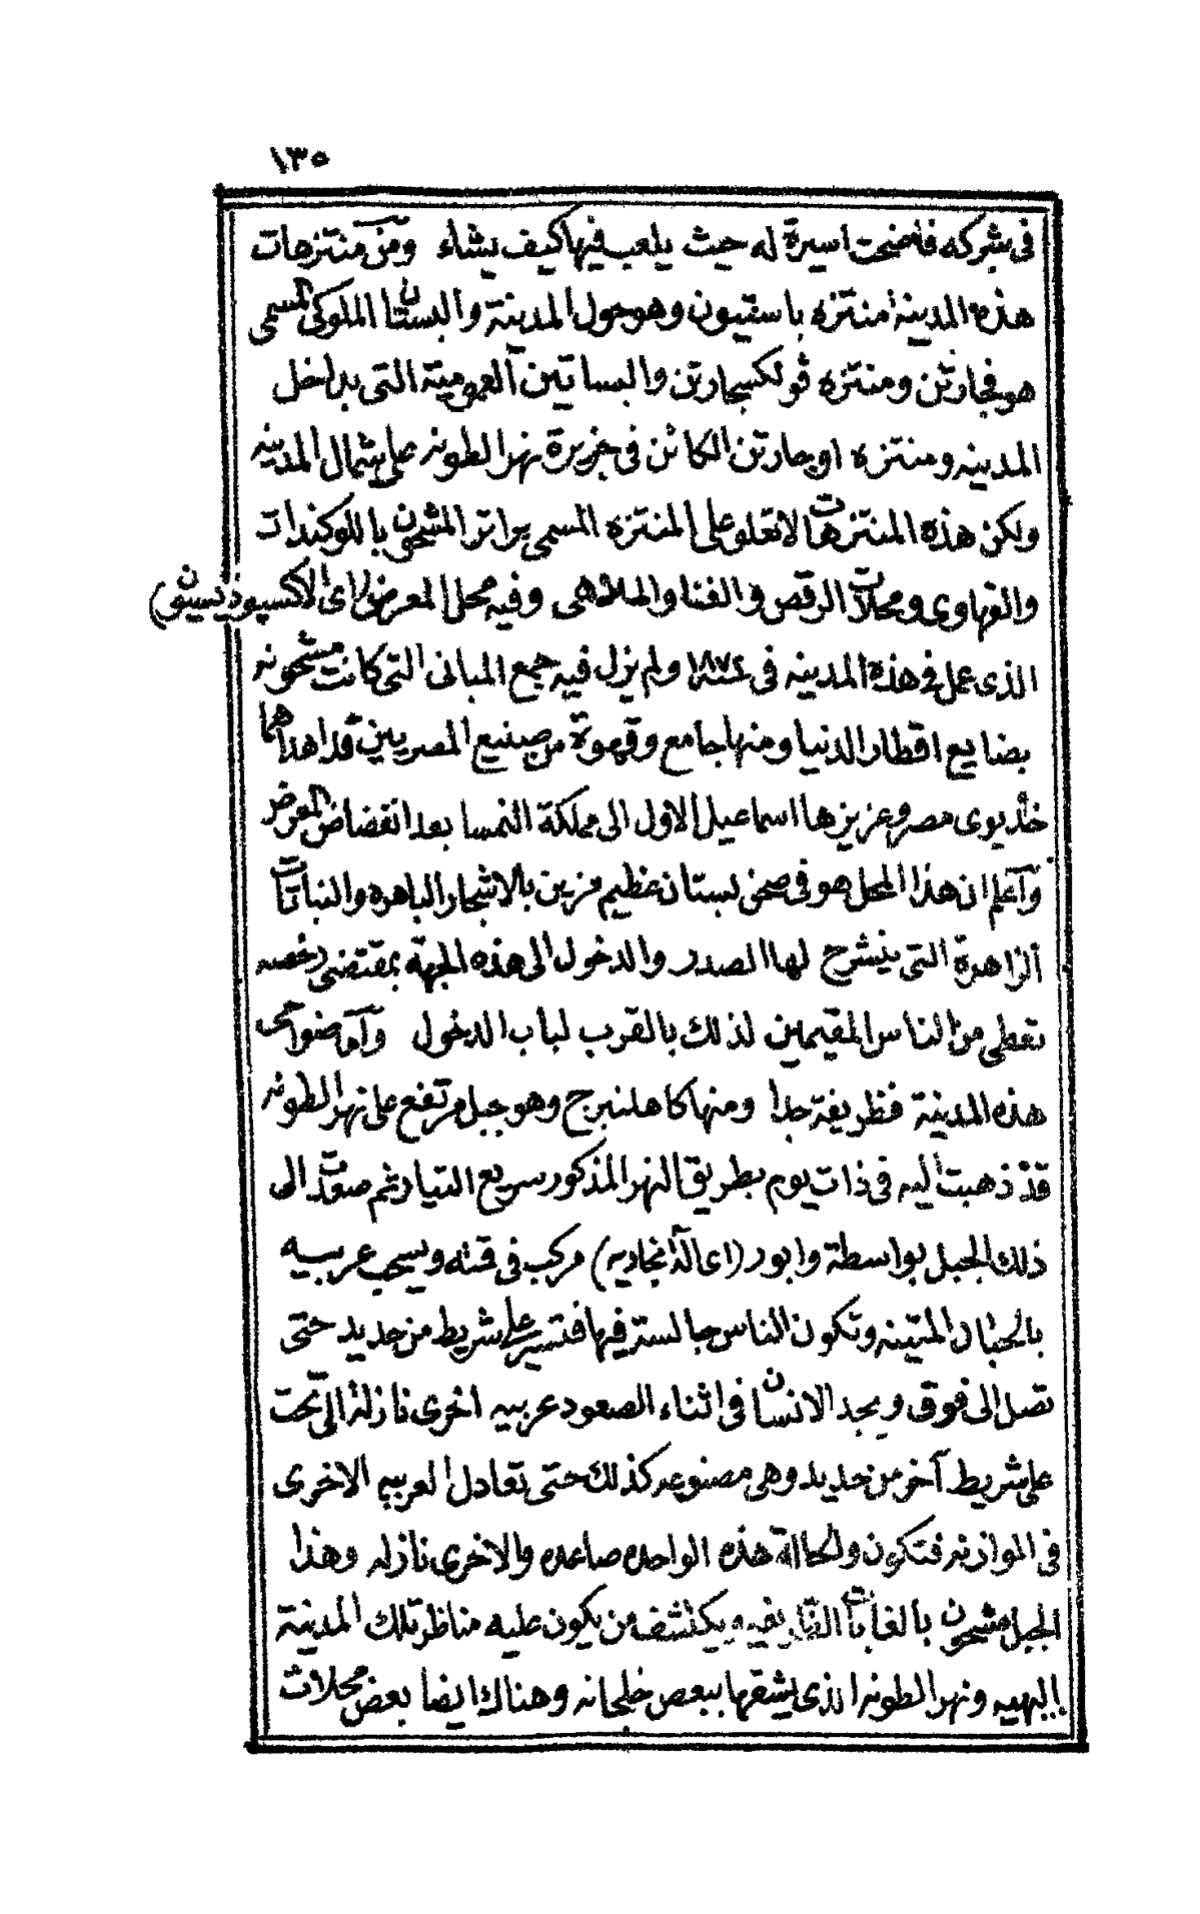 ١٣٥
فى شركه فاضحت اسيرة له حيث يلعب فيها كيف يشاء ومن منتزهات
هذه المدينة منتزه باسقيون وهو حول المدينة والبستان الملوكى المسمى
هو فجارتن ومنتزه فولكسجارتن والبساتين العمومية التى بداخل
المدينه ومنتزه اوجارتن الكائن فى جزيرة نهر الطونه على شمال المدينه
ولكن هذه المنتزهات لا تعلو على المنتزه المسمى براتر المشحون باللوكندات
والقهاوى ومحلات الرقص والغنا والملاهى وفيه محل المعرض (اى الاكسپوزيسيون)
الذى عمل فى هذه المدينه فى سنة ١٨٧٢ ولم يزل فيه جميع المبانى التى كانت مشحونه
بضايع اقطار الدنيا ومنها جامع وقهوة من صنيع المصريين قد اهداهما
خديوى مصر وعزيزها اسماعيل الاول الى مملكة النمسا بعد انفضاض المعرض
واعلم ان هذا المحل هو فى صحن بستان عظيم مزين بالاشجار الباهره والنباتات
الزاهرة التى ينشرح لها الصدر والدخول الى هذه الجهة بمقتضى رخصه
تعطى من الناس المقيمين لذلك بالقرب لباب الدخول واما ضواحى
هذه المدينة فظريفة جدا ومنها كاهلنبرج وهو جبل مرتفع على نهر الطونه
قد ذهبت اليه فى ذات يوم بطريق النهر المذكور سريع التيار ثم صعدت الى
ذلك الجبل بواسطة وابور (اى الة بخاريه) مركب فى قمته ويسحب عربيه
بالحبال المتينه وتكون الناس جالسة فيها فتسير على شريط من حديد حتى
تصل الى فوق ويجد الانسان فى اثناء الصعود عربيه اخرى نازلة الى تحت
على شريط آخر من حديد وهى مصنوعه كذلك حتى تعادل العربيه الاخرى
فى الموازنه فتكون والحالة هذه الواحده صاعده والاخرى نازله وهذا
الجبل مشحون بالغابات ويكشف من يكون عليه مناظر تلك المدينة
البهيه ونهر الطونه الذى يشقها ببعض خلجانه وهناك ايضا بعض محلات